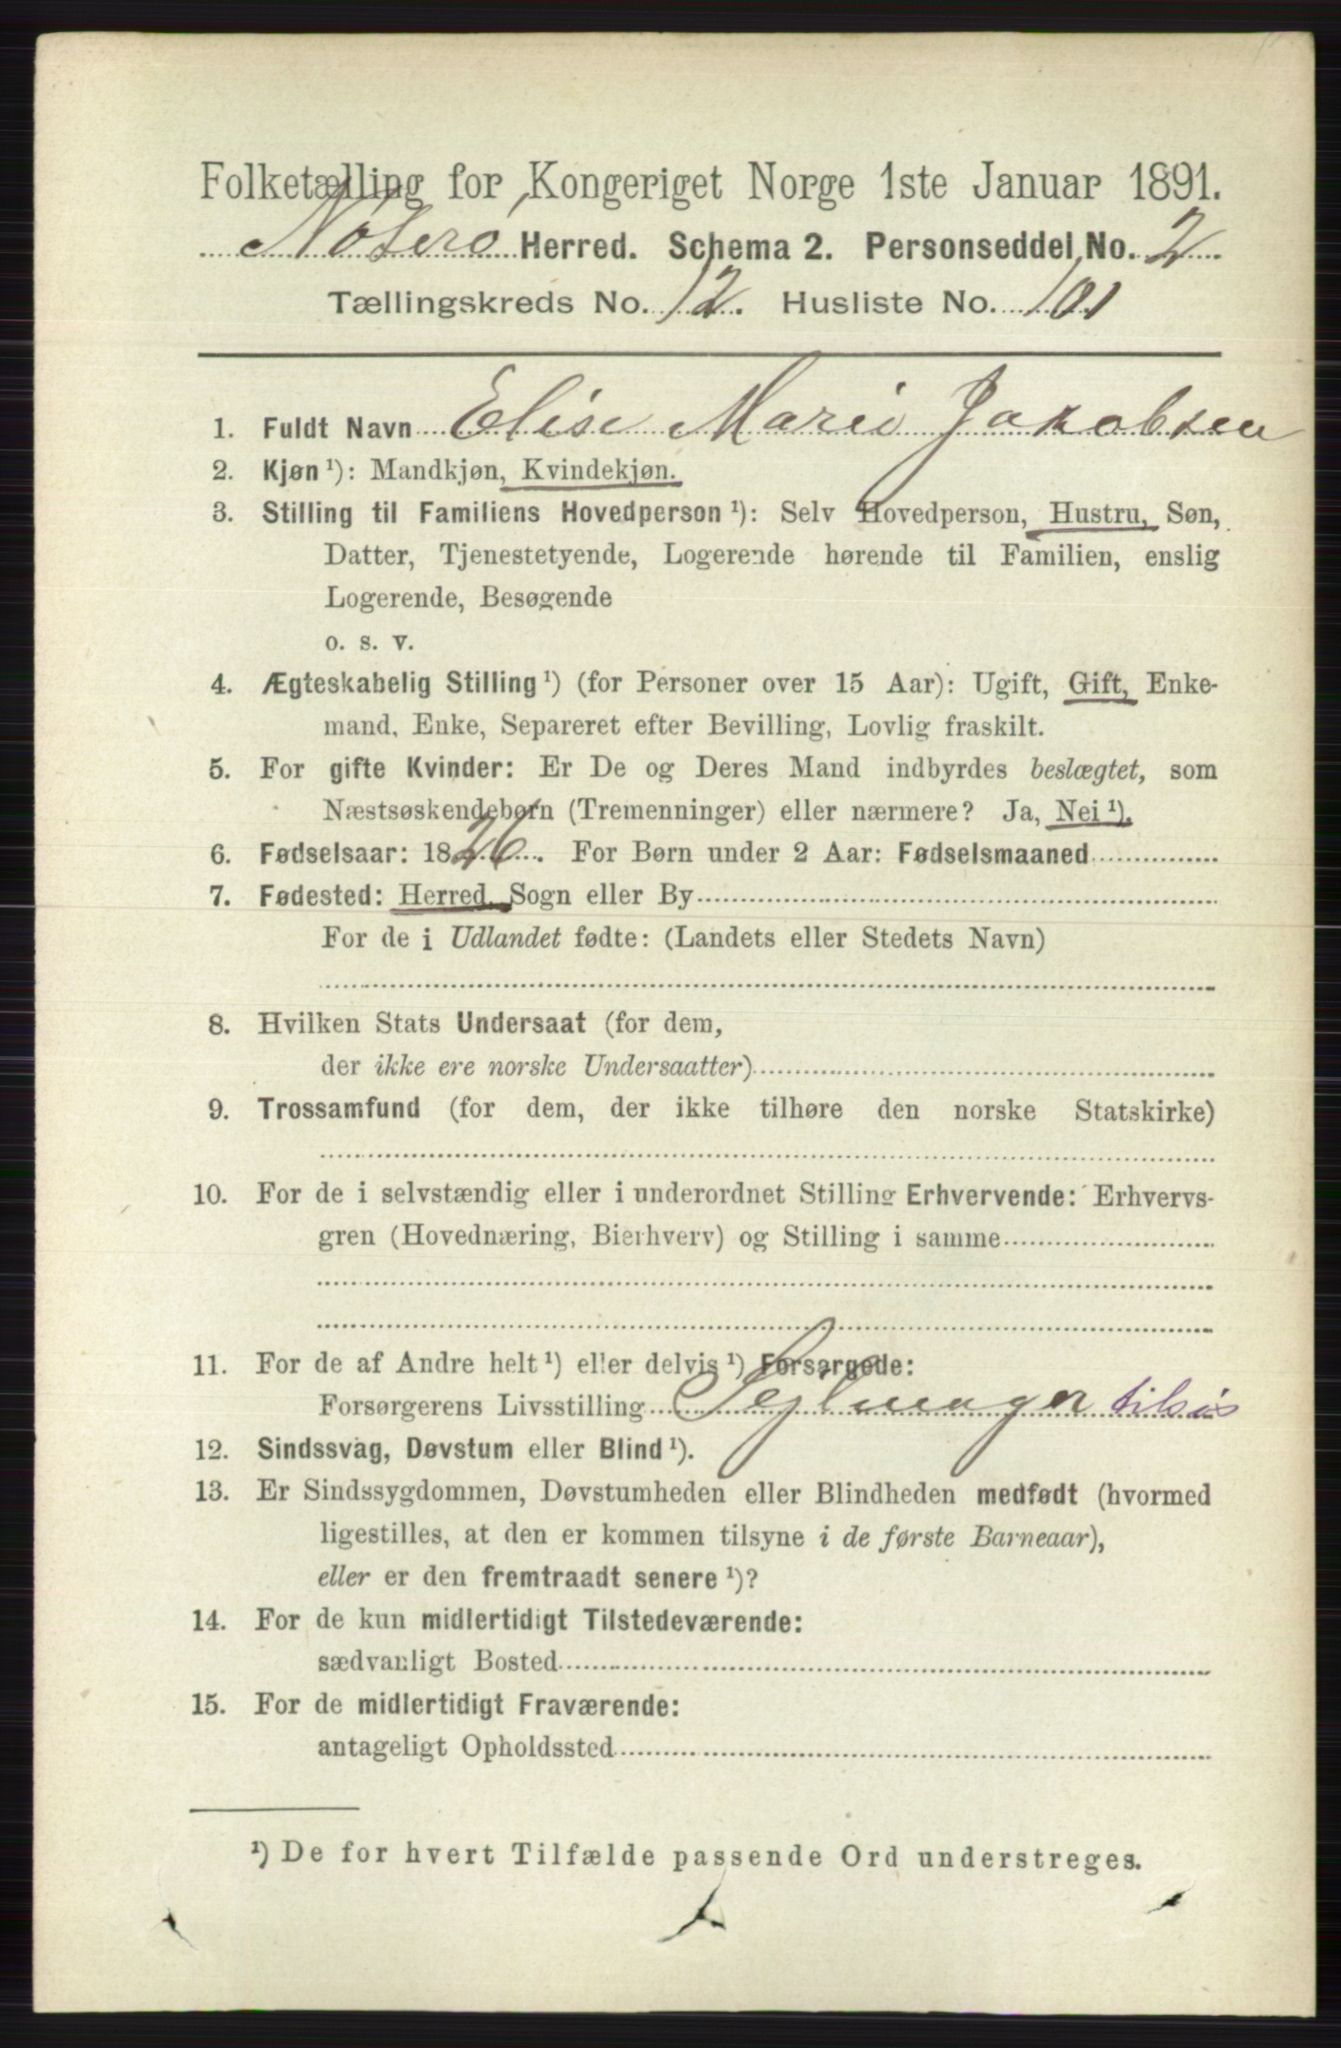 Folketælling for Kongeriget Norge 1ste Januar 1891.
Nøterø Herred. Schema 2. Personseddel No. 2
Tællingskreds No. 12. Husliste No. 101
1. Fuldt Navn Elise Marie Jakobsen
2. Kjøn ¹): Mandkjøn, Kvindekjøn.
3. Stilling til Familiens Hovedperson ¹): Selv Hovedperson, Hustru, Søn,
Datter, Tjenestetyende, Logerende hørende til Familien, enslig
Logerende, Besøgende
o. s. v.
4. Ægteskabelig Stilling ¹) (for Personer over 15 Aar): Ugift, Gift, Enke-
mand, Enke, Separeret efter Bevilling, Lovlig fraskilt.
5. For gifte Kvinder: Er De og Deres Mand indbyrdes beslægtet, som
Næstsøskendebørn (Tremenninger) eller nærmere? Ja, Nei ¹).
6. Fødselsaar: 1826. For Børn under 2 Aar: Fødselsmaaned
7. Fødested: Herred, Sogn eller By
For de i Udlandet fødte: (Landets eller Stedets Navn)
8. Hvilken Stats Undersaat (for dem,
der ikke ere norske Undersaatter)
9. Trossamfund (for dem, der ikke tilhøre den norske Statskirke)
10. For de i selvstændig eller i underordnet Stilling Erhvervende: Erhvervs-
gren (Hovednæring, Bierhverv) og Stilling i samme
11. For de af Andre helt ¹) eller delvis ¹) Forsørgede:
Forsørgerens Livsstilling tilsjøs
12. Sindssvag, Døvstum eller Blind ¹).
13. Er Sindssygdommen, Døvstumheden eller Blindheden medfødt (hvormed
ligestilles, at den er kommen tilsyne i de første Barneaar),
eller er den fremtraadt senere ¹)?
14. For de kun midlertidigt Tilstedeværende:
sædvanligt Bosted
15. For de midlertidigt Fraværende:
antageligt Opholdssted
¹) De for hvert Tilfælde passende Ord understreges.